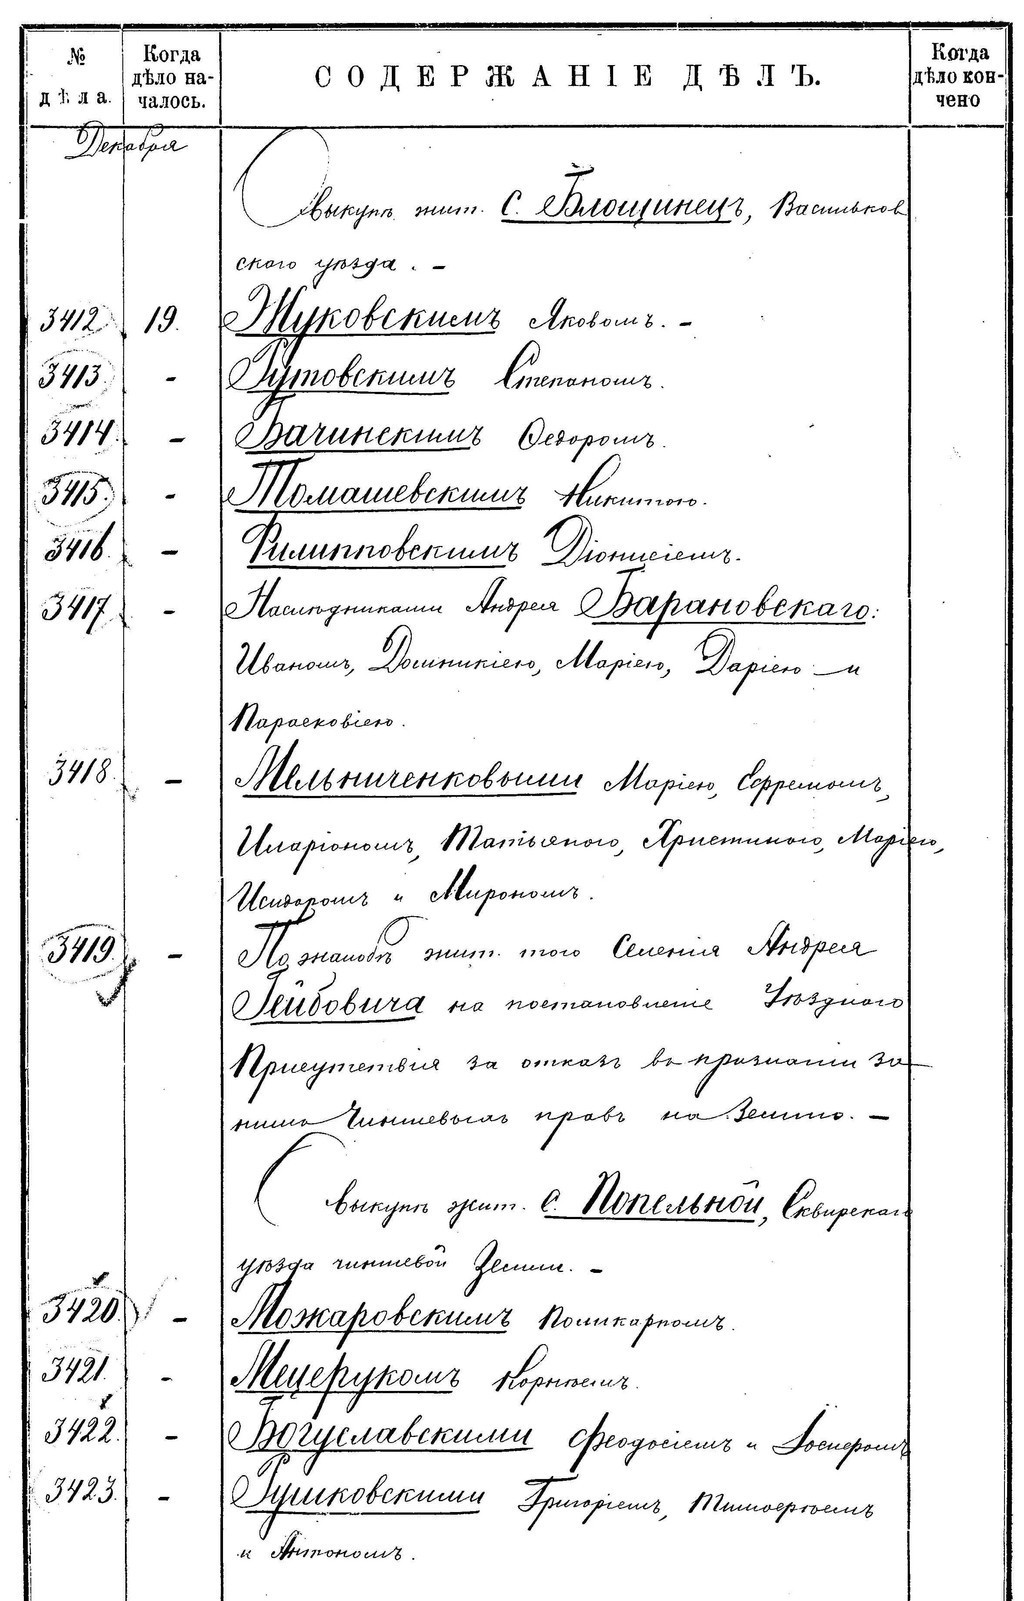 №
дѣла.
Когда
дѣло на-
чалось.
СОДЕРЖАНІЕ ДѢЛЪ.
Когда
дѣло кон-
чено
Декабря
Выкупъ жит. с. Блощинецъ, Васильков
ского уѣзда. -
3412 19. Жуковскимъ Яковомъ. -
3413 - Гутовскимъ Степаномъ.
3414. - Вачинскимъ Ѳедоромъ.
3415. - Томашевскимъ Никитою.
3416. - Филипповскимъ Діонисіемъ.
3417 - Наслѣдниками Андрея Барановскаго:
Иваномъ, Доминикіею, Маріею, Даріею и
Парасковіею.
3418. - Мельниченковыми Маріею, Ефремомъ,
Иларіономъ, Татьяною, Христиною, Маріею,
Исидоромъ и Мирономъ.
3419. - По жалобѣ жит. того Селенія Андрея
Гейбовича на постановленіе Уѣзднаго
Присутствія за отказъ въ признаніи за
нимъ Чиншевыхъ правъ на Землю. -
Выкупъ жит. с. Попельной, Сквирскаго
уѣзда чиншевой Земли. -
3420. - Можаровскимъ Поликарпомъ.
3421. - Мецерукомъ Корнѣемъ.
3422. - Богуславскими Феодосіемъ и
3423. - Гушковскими Григоріемъ, Тимофѣемъ
и Антономъ.